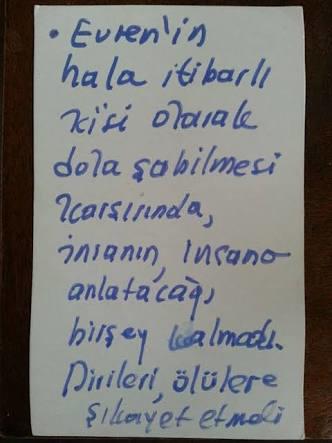 • Evren'in
hala itibarlı
kişi olarak
dolaşabilmesi
karşısında,
insanın, insana
anlatacağı
birşey kalmadı.
Dirileri, ölülere
şikayet etmeli